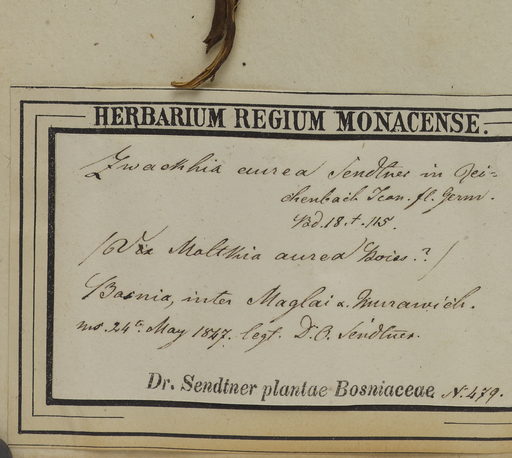 HERBARIUM REGIUM MONACENSE.
Zwackhia aurea Sendtner in Rei-
chenbach Icon. fl. Germ.
Bd. 18. t. 115.
(Vix Moltkia aurea Boiss.?)
Bosnia, inter Maglai &
24 May 1847. legt. D. O. Sendtner.
Dr. Sendtner plantae Bosniaceae. N. 479.